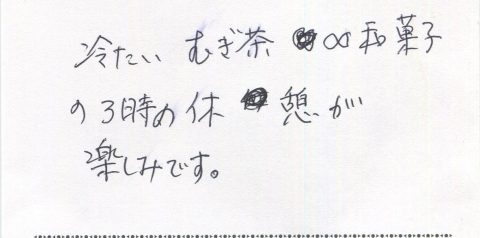 冷たい むぎ茶 ∞ 和菓子
の3時の休憩が
楽しみです。